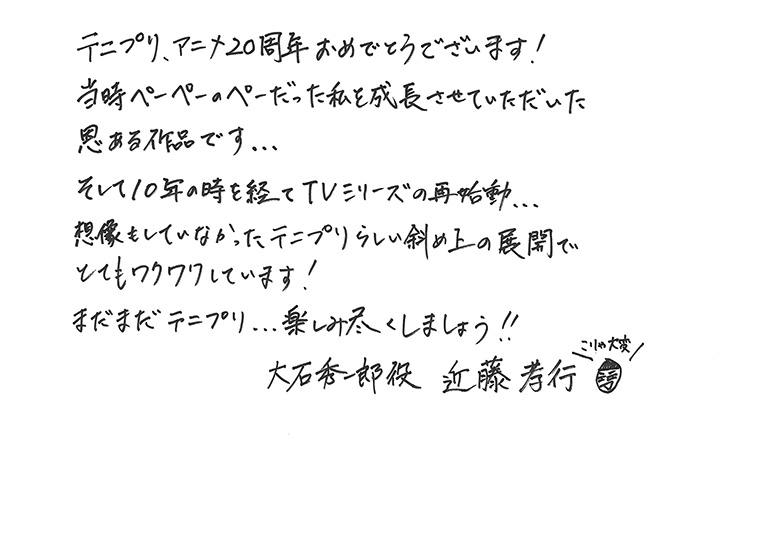 テニプリ、アニメ20周年おめでとうでございます!
当時ペーペーのペーだった私を成長させていただいた
恩ある作品です...
そして10年の時を経てTVシリーズの再始動...
想像もしていなかったテニプリらしい斜め上の展開で
とてもワクワクしています!
まだまだテニプリ...楽しみ尽くしましょう!!
こりゃ大変
大石秀一郎役 近藤孝行